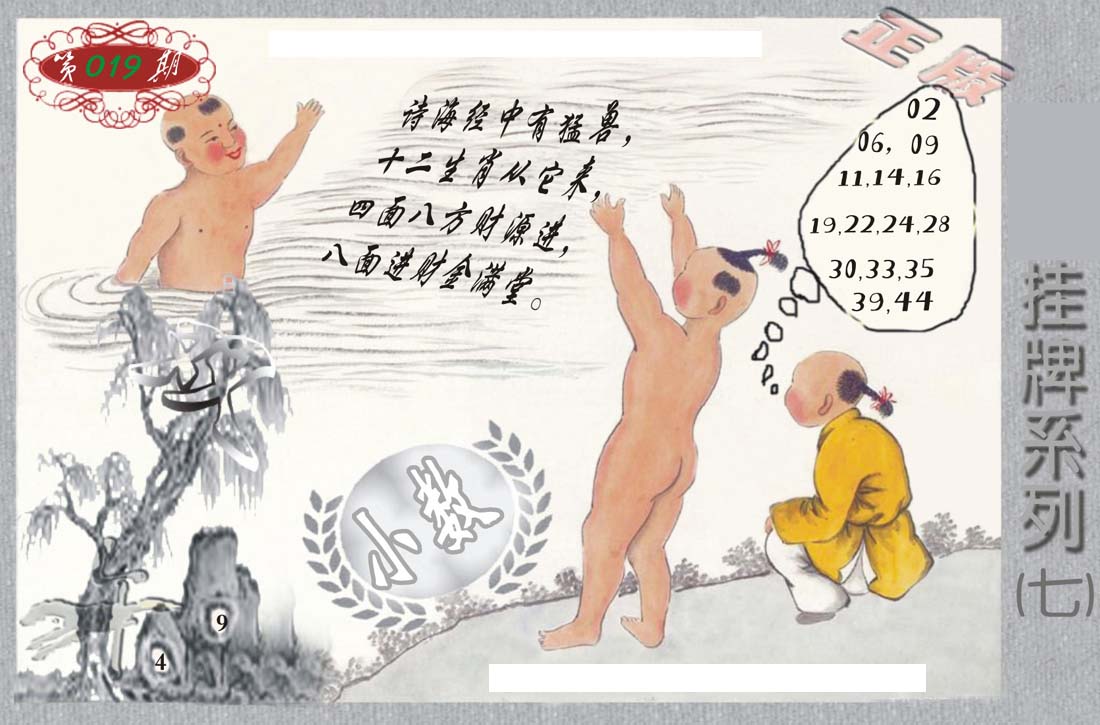 第019期
正版
诗海经中有猛兽，
十二生肖从它来，
四面八方财源进，
八面进财金满堂。
02
06，09
11,14,16
19,22,24,28
30,33,35
39,44
挂牌系列
(七)
小数
9
4